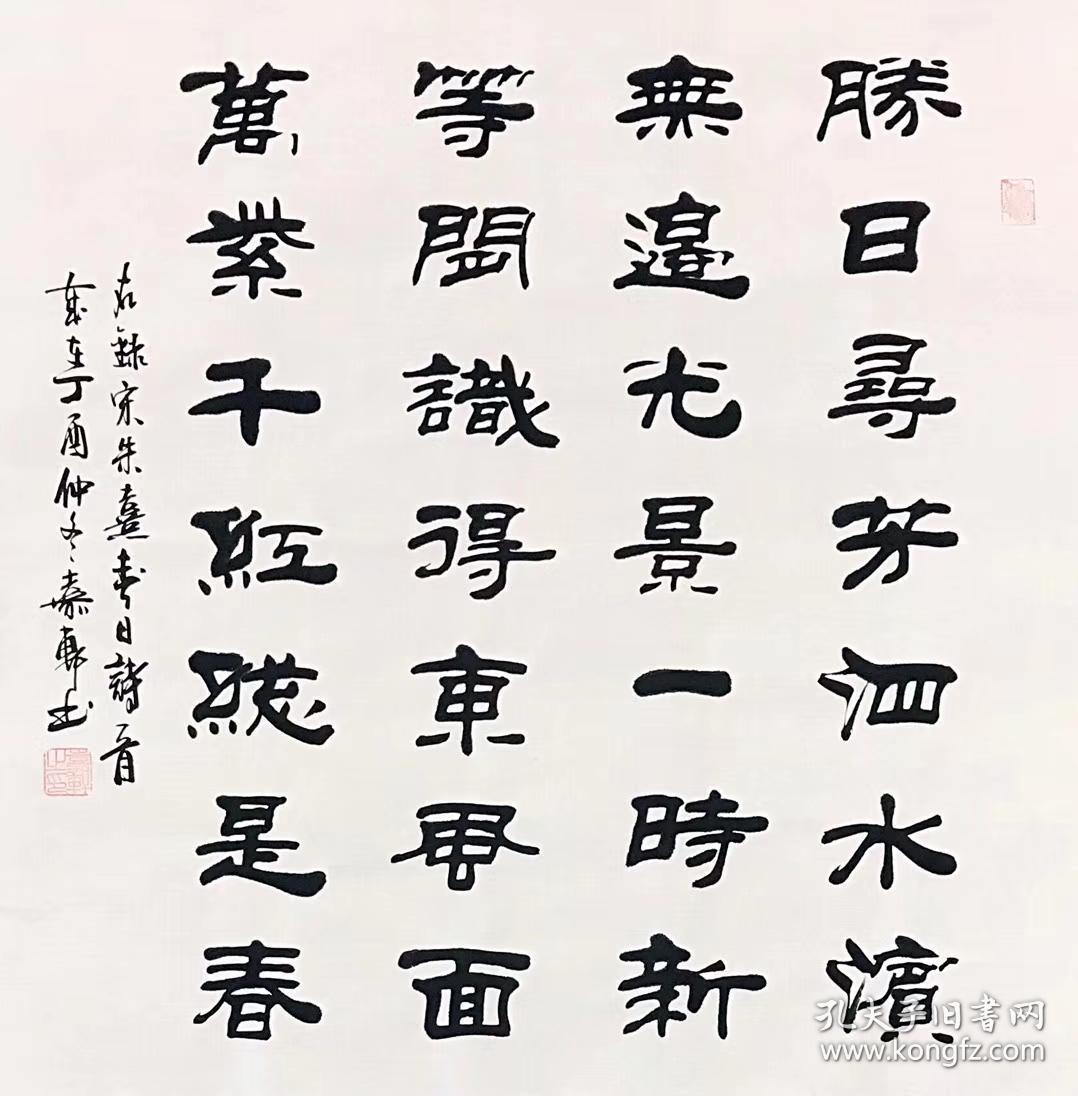 勝日尋芳泗水濱
無邊光景一時新
等閒識得東風面
萬紫千紅總是春
右錄宋朱熹春日詩一首
歲在丁酉仲冬
書
孔夫子旧书网
www.kongfz.com